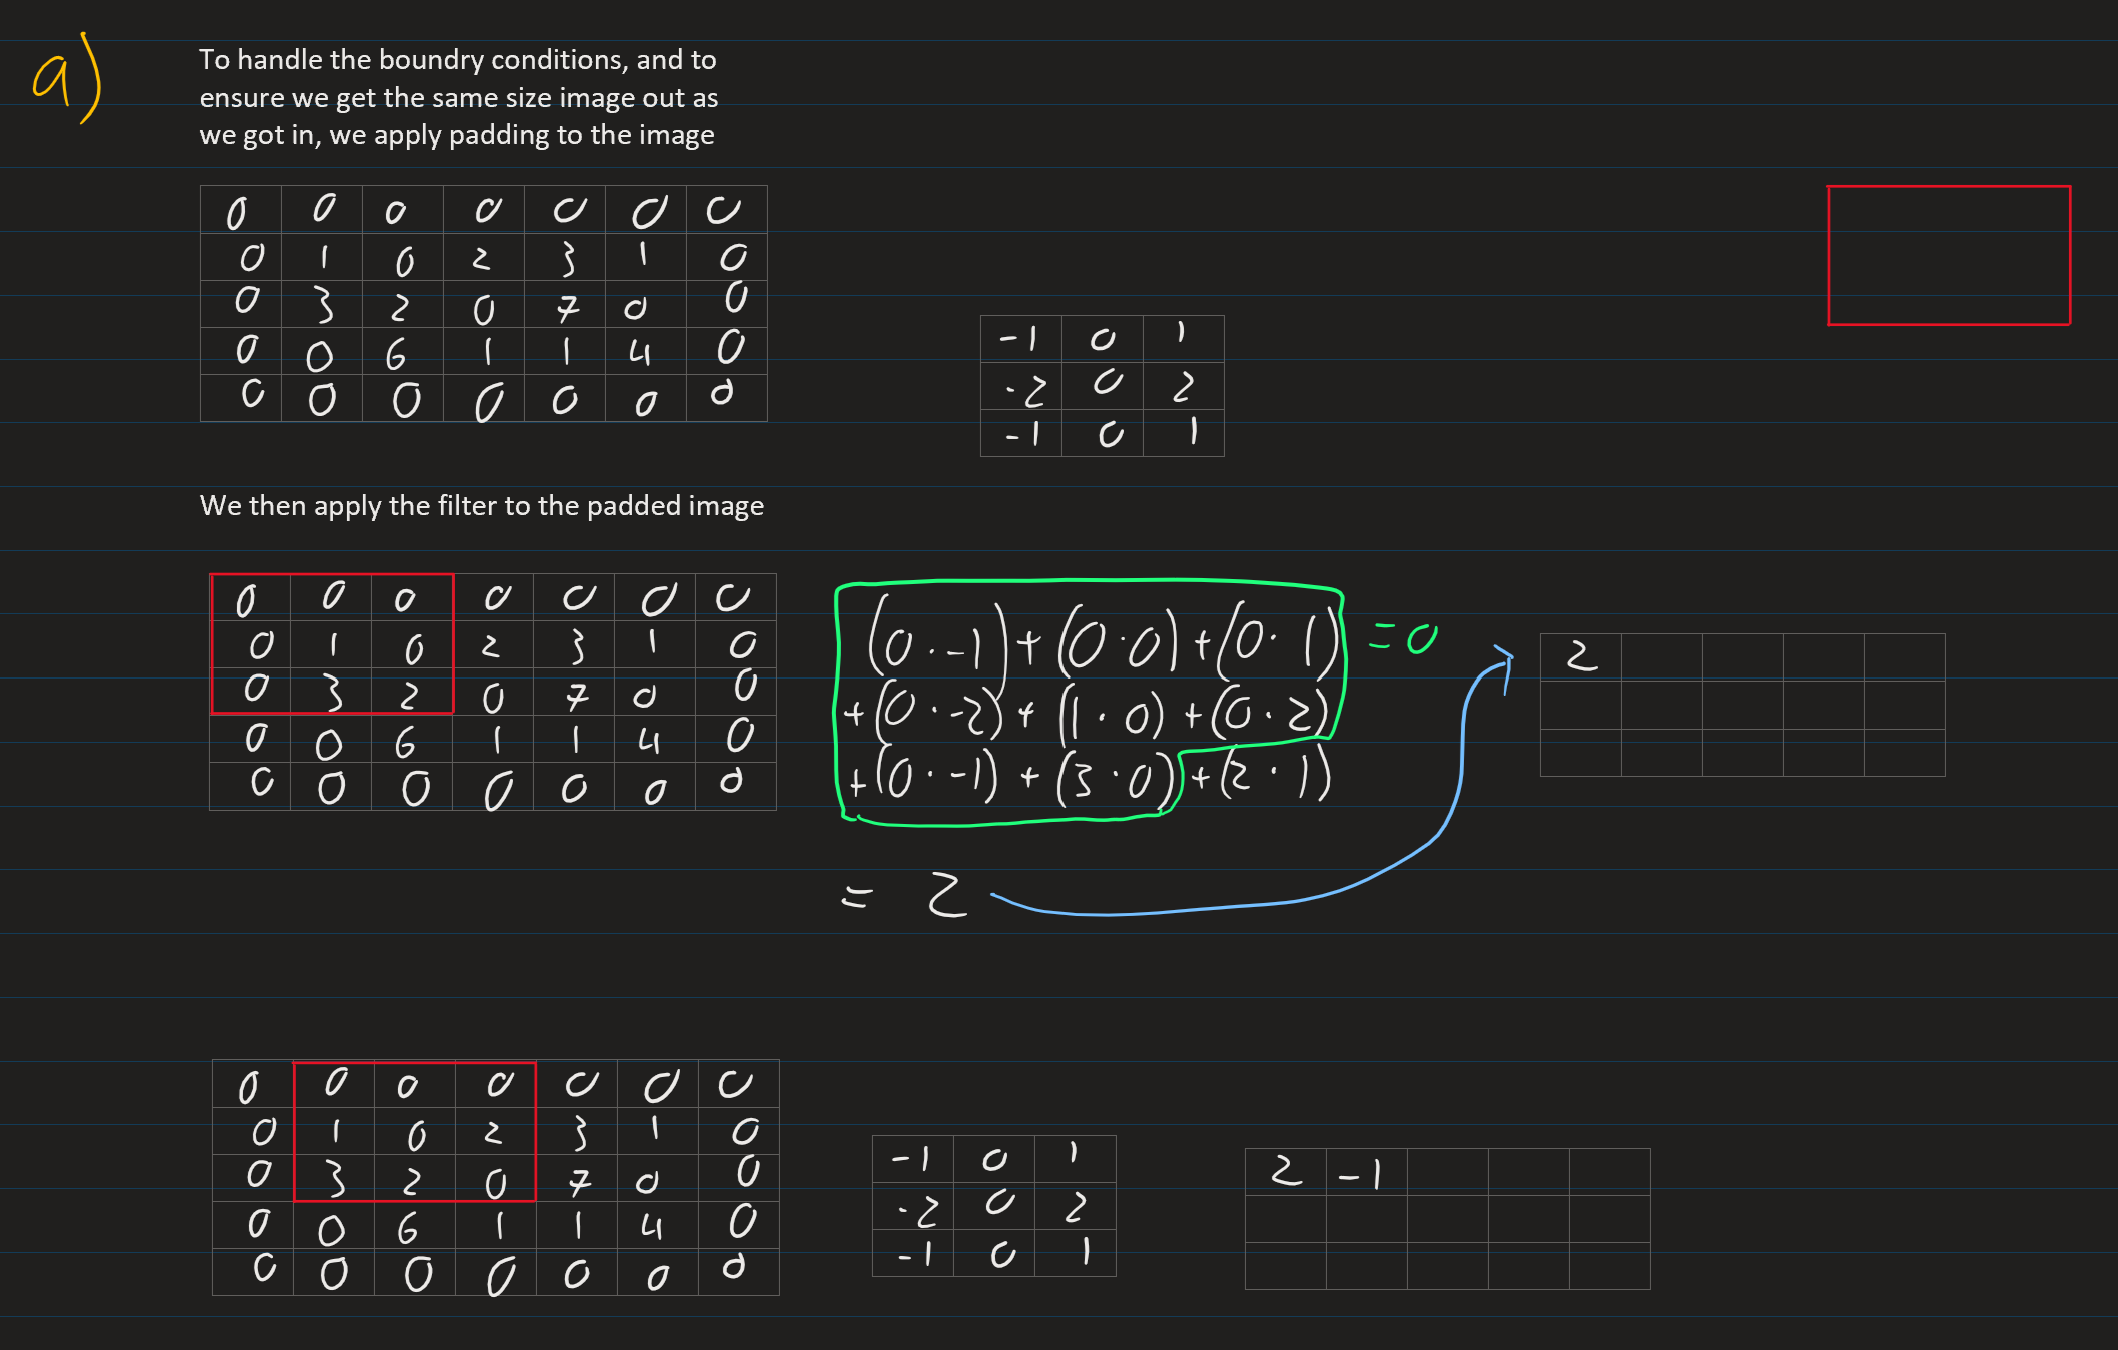 a)
To handle the boundry conditions, and to
ensure we get the same size image out as
we got in, we apply padding to the image
0 0 0 0 0 0 0
0 1 0 2 3 1 0
0 3 2 0 7 0 0
0 0 6 1 1 4 0
0 0 0 0 0 0 0
-1 0 1
-2 0 2
-1 0 1
We then apply the filter to the padded image
0 0 0 0 0 0 0
0 1 0 2 3 1 0
0 3 2 0 7 0 0
0 0 6 1 1 4 0
0 0 0 0 0 0 0
(0 · -1) + (0 · 0) + (0 · 1) = 0
+ (0 · -2) + (1 · 0) + (0 · 2)
+ (0 · -1) + (3 · 0) + (2 · 1)
= 2
2
0 0 0 0 0 0 0
0 1 0 2 3 1 0
0 3 2 0 7 0 0
0 0 6 1 1 4 0
0 0 0 0 0 0 0
-1 0 1
-2 0 2
-1 0 1
2 -1